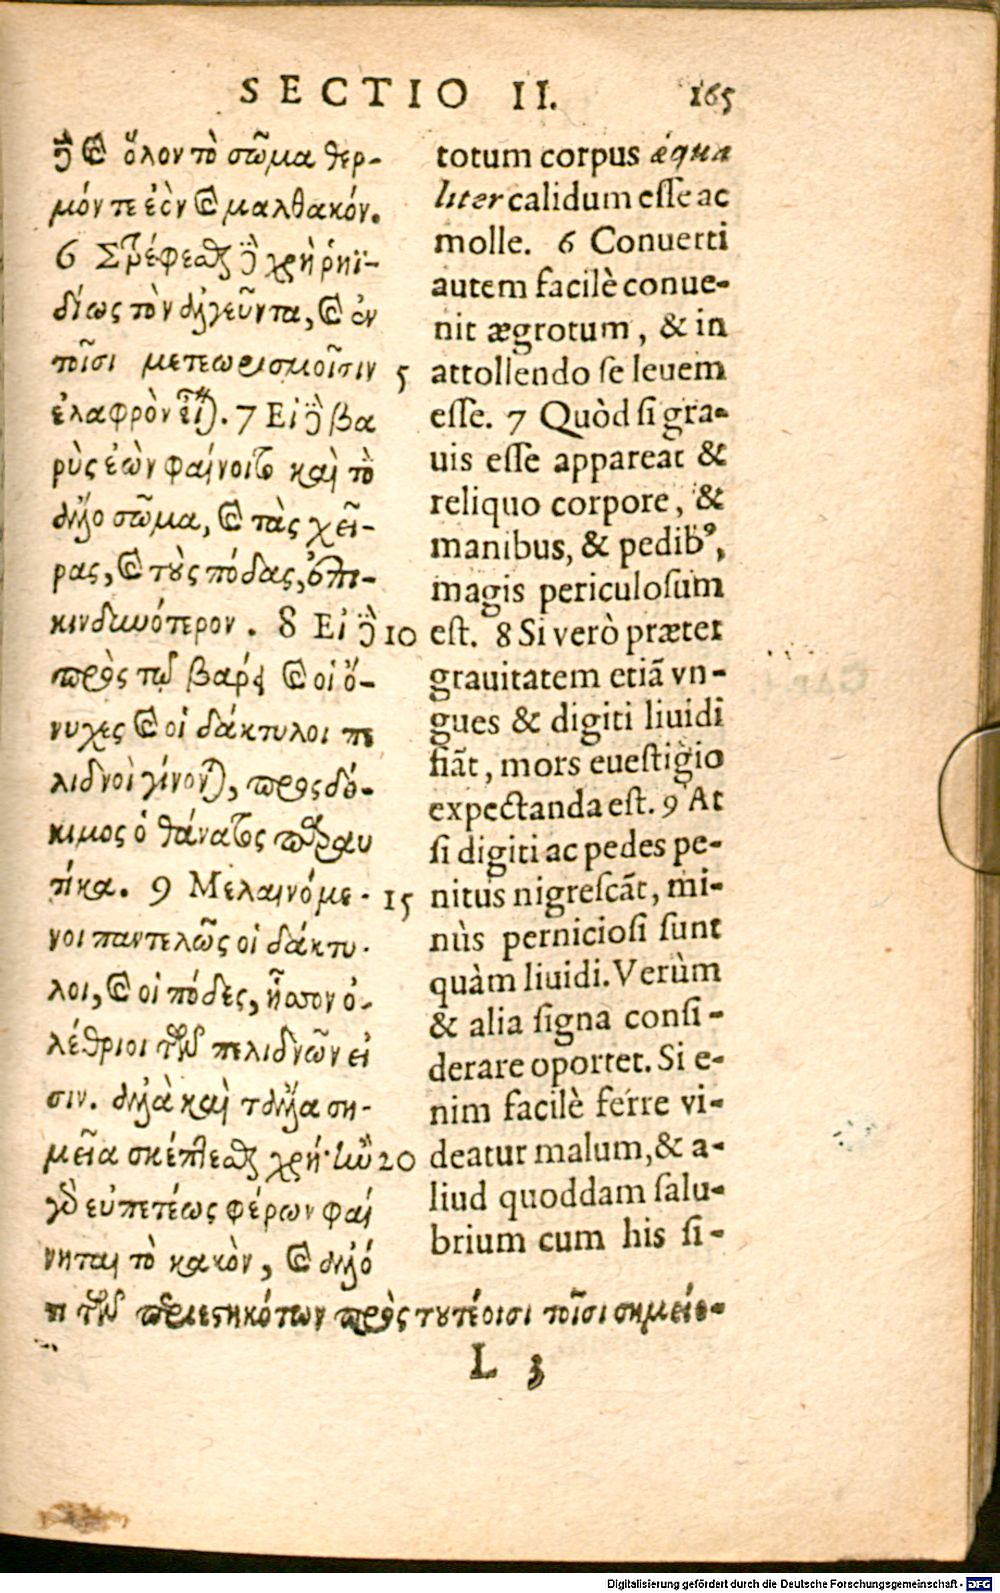 SECTIO II. 165
δὲ καὶ ὅλον τὸ σῶμα θερ-
μόν τε ἐὸν καὶ μαλθακόν.
6 Στρέφεσθαι δὲ χρὴ ῥηϊ-
δίως τὸν ἀλγεῦντα, καὶ ἐν
τοῖσι μετεωρισμοῖσιν 5
ἐλαφρὸν εἶναι. 7 Εἰ δὲ βα
ρὺς ἐὼν φαίνοιτο καὶ τὸ
ἄλλο σῶμα, καὶ τὰς χεῖ-
ρας, καὶ τοὺς πόδας, ἐπι-
κινδυνότερον. 8 Εἰ δὲ 10
πρὸς τῷ βάρει καὶ οἱ ὄ-
νυχες καὶ οἱ δάκτυλοι πε
λιδνοὶ γίνονται, πρὸς δό-
κιμος ὁ θάνατος παραυ
τίκα. 9 Μελαινόμε- 15
νοι παντελῶς οἱ δάκτυ-
λοι, καὶ οἱ πόδες, ἧσσον ὀ-
λέθριοι τῶν πελιδνῶν εἰ
σιν. ἀλλὰ καὶ τἄλλα ση-
μεῖα σκέπτεσθαι χρή· ἢν 20
γὰρ εὐπετέως φέρων φαί
νηται τὸ κακὸν, καὶ ἄλλό
τι τῶν περιεστηκότων πρὸς τουτέοισι τοῖσι σημείο-
totum corpus æqua
liter calidum esse ac
molle. 6 Conuerti
autem facilè conue-
nit ægrotum, & in
attollendo se leuem
esse. 7 Quòd si gra-
uis esse appareat &
reliquo corpore, &
manibus, & pedibꝰ,
magis periculosum
est. 8 Si verò præter
grauitatem etiã vn-
gues & digiti liuidi
fiãt, mors euestigio
expectanda est. 9 At
si digiti ac pedes pe-
nitus nigrescãt, mi-
nùs perniciosi sunt
quàm liuidi. Verùm
& alia signa consi-
derare oportet. Si e-
nim facilè ferre vi-
deatur malum, & a-
liud quoddam salu-
brium cum his si-
L 3
Digitalisierung gefördert durch die Deutsche Forschungsgemeinschaft - DFG